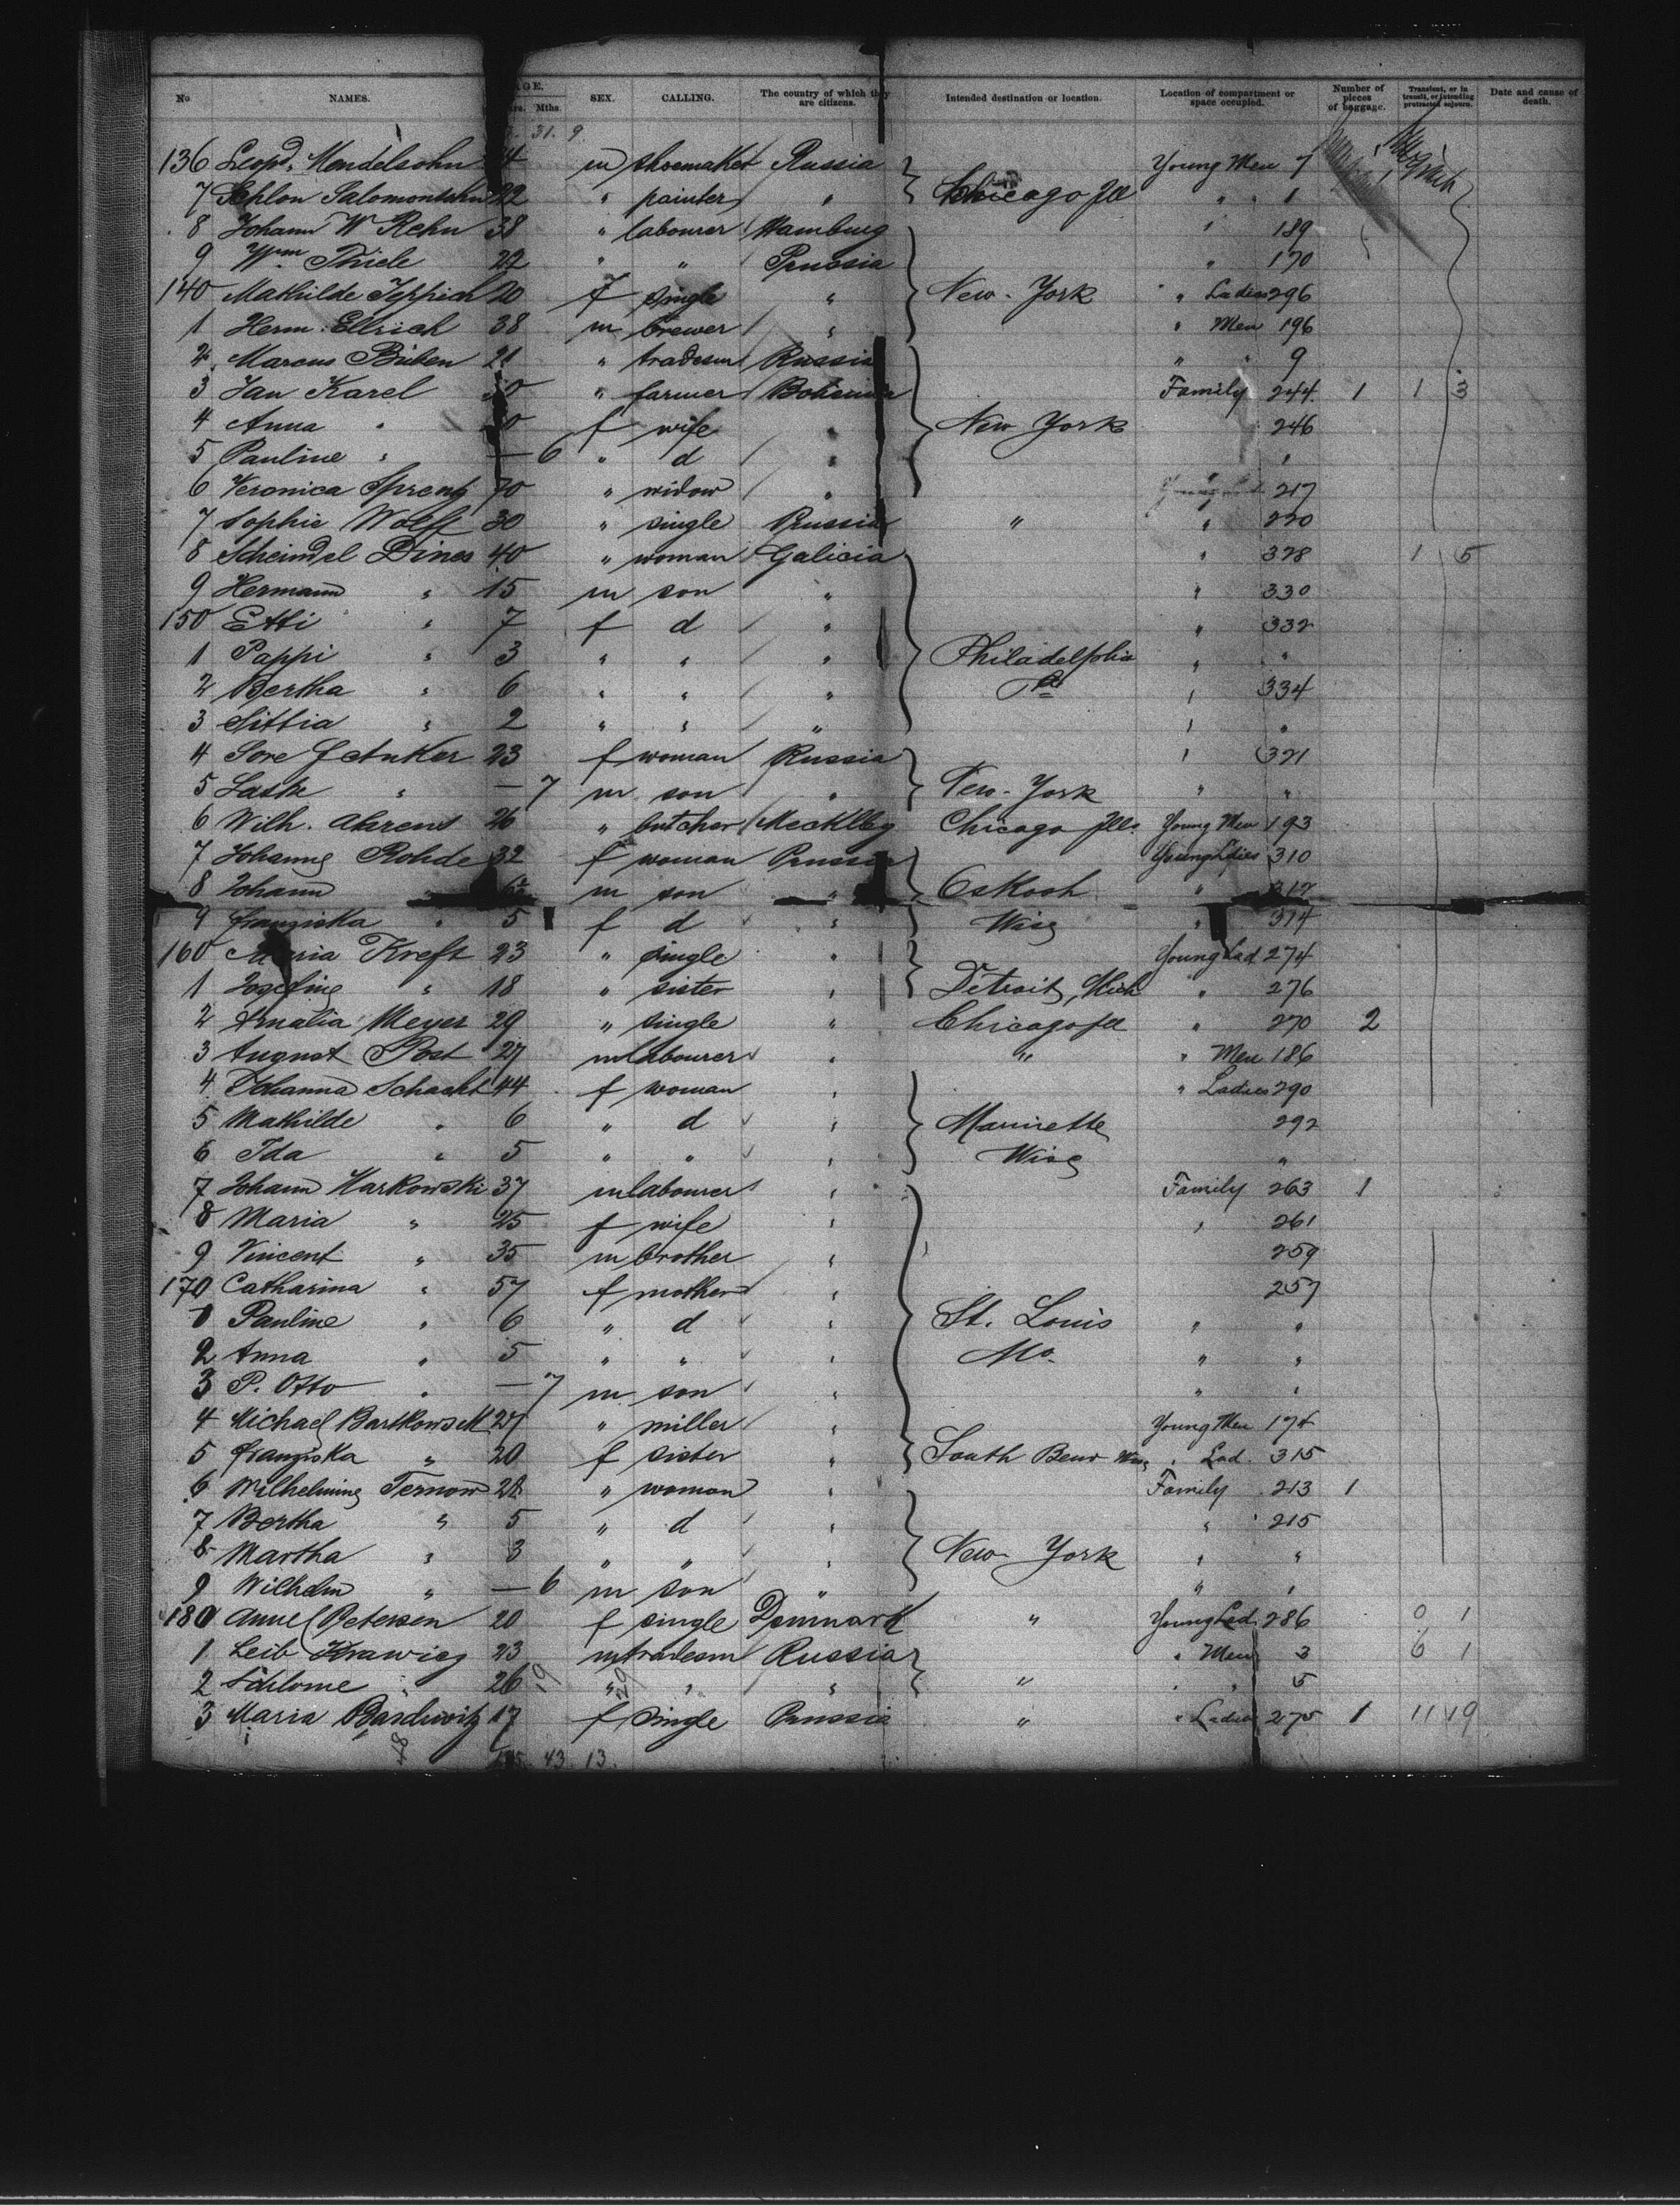 No. NAMES. AGE. Yrs. Mths. SEX. CALLING. The country of which they are citizens. Intended destination or location. Location of compartment or space occupied. Number of pieces of baggage. Transient, or in transit, or intending protracted sojourn. Date and cause of death.
31. 9
136 Leopd. Mendelsohn 24 m shoemaker Russia } Chicago Ill Young Men 7
7 Schlon 22 " painter " " " 1
8 Johann W Rehn 38 " labourer Hamburg " 189
9 Wm Thiele 22 " " Prussia " 170
140 Mathilde Teppich 20 f single " New-York " Ladies 296
1 Herm. Ellrich 38 m brewer " " Men 196
2 Marcus Büben 21 " tradesm Russia " " 9
3 Jan Karel " farmer Bohemia Family 244 1 1 3
4 Anna " f wife " New York 246
5 Pauline " — 6 " d " "
6 Veronica Sprentz 70 " widow " 217
7 Sophie Wolff 30 " single Prussia " " 220
8 Scheindel Dines 40 " woman Galicia " 328 1 5
9 Hermann " 15 m son " " 330
150 Etti " 7 f d " " 332
1 Pappi " 3 " " " Philadelphia " "
2 Bertha " 6 " " " Pa " 334
3 Sittia " 2 " " " " "
4 Sore Janker 23 f woman Russia " 321
5 Laske " — 7 m son " New-York " "
6 Wilh. Ahrens 26 " butcher Mecklbg Chicago Ills. Young Men 193
7 Johanne Rohde 32 f woman Prussia Young Ladies 310
8 Johann " 6 m son " Oskosh " 312
9 Franziska " 5 f d " Wisc " 314
160 Maria Kreft 23 " single " Young Lad 274
1 Josefine " 18 " sister " Detroit, Mich " 276
2 Amalia Meyer 29 " single " Chicago Ill " 270 2
3 August Post 27 m labourer " " " Men 186
4 Johanna Schacht 44 f woman " " Ladies 290
5 Mathilde " 6 " d " Marinette 292
6 Ida " 5 " " " Wisc "
7 Johann Markowski 37 m labourer " Family 263 1
8 Maria " 25 f wife " " 261
9 Vincent " 35 m brother " 259
170 Catharina " 57 f mother " 257
1 Pauline " 6 " d " St. Louis " "
2 Anna " 5 " " " Mo. " "
3 P. Otto " — 7 m son " " "
4 Michael Bartkowsek 27 " miller " Young Men 174
5 Franziska " 20 f sister " South Bend Wisc " Lad. 315
6 Wilhelmine Ternow 28 " woman " Family 213 1
7 Bertha " 5 " d " " 215
8 Martha " 3 " " " New-York " "
9 Wilhelm " — 6 m son " " "
180 Anne Petersen 20 f single Denmark " Young Lad. 286 0 1
1 Leib Krawiec 23 m tradesm Russia " Men 3 6 1
2 Schlome " 26 " " " " " " 5
3 Maria Bardwitz 17 f single Prussia " " Ladies 275 1 11 19
48 43 13.